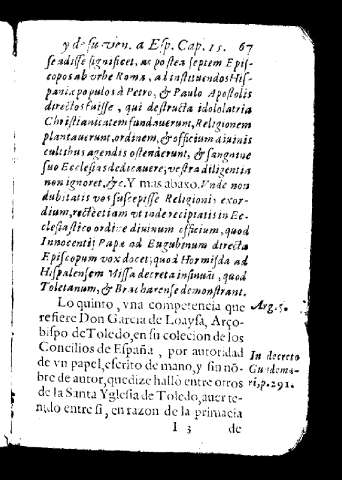 y de su ven. a Esp. Cap. 15. 67
se adisse significet, ac postea septem Epis-
copos ab vrbe Roma, ad instituendos His-
paniæ populos à Petro, & Paulo Apostolis
directos fuisse, qui destructa idololatria
Christianitatem fundauerunt, Religionem
plantauerunt, ordinem, & officium diuinis
cultibus agendis ostenderunt, & sanguine
suo Ecclesias dedicauere; vestra diligentia
non ignoret, &c. Y mas abaxo. Vnde non
dubitatis vos suscepisse Religionis exor-
dium, restet etiam vt inde recipiatis in Ec-
clesiastico ordine diuinum officium, quod
Innocentij Papæ ad Eugubinum directa
Episcopum vox docet; quod Hormisda ad
Hispalensem Missa decreta insinuat, quod
Toletanum, & Bracharense demonstrant.
Lo quinto, vna competencia que Arg. 5.
refiere Don Garcia de Loaysa, Arço-
bispo de Toledo, en su colecion de los
Concilios de España, por autoridad In decreto
de vn papel, escrito de mano, y sin nõ- Gundema-
bre de autor, que dize hallò entre otros ri, p. 291.
de la Santa Yglesia de Toledo, auer te-
nido entre si, en razon de la primacia
I 3 de